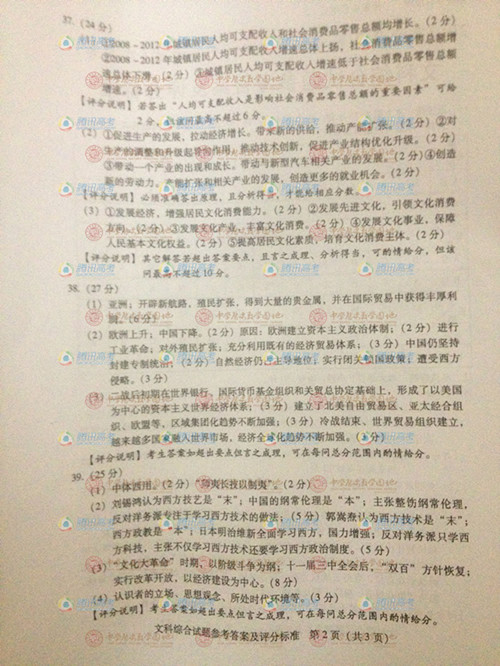 37. (24分)
(1) ①2008-2012年城镇居民人均可支配收入和社会消费品零售总额均增长。(2分)
②2008-2012年城镇居民人均可支配收入增速总体上扬,社会消费品零售总额增
速总体下滑。(2分)③城镇居民人均可支配收入增速低于社会消费品零售总额
增速。(2分)
【评分说明】若答出“人均可支配收入是影响社会消费品零售总额的重要因素”可给
2分,但该问最高不超过6分。
(2) ①促进生产的发展,拉动经济增长。带来新的供给,推动产业扩张。(2分)②对
生产的调整和升级起导向作用,推动技术创新,促进产业结构优化升级。(2分)
③带动一个产业的出现和成长。带动与新型汽车相关产业的发展。(2分)④创造
新的劳动力。产能扩张和相关产业的发展,创造更多的就业机会。(2分)
【评分说明】必须准确答出原理,且分析得当,才能给相应分数。
(3) ①发展经济,增强居民文化消费能力。(2分)②发展先进文化,引领文化消费
方向。(2分)③发展文化产业,丰富文化消费。(2分)④发展文化事业,保障
人民基本文化权益。(2分)⑤提高居民文化素质,培育文化消费主体。(2分)
【评分说明】其它解答若超出答案要点,且言之成理,分析得当,可酌情给分,但该
问最高不超过10分。
38. (27分)
(1) 亚洲;开辟新航路,殖民扩张,得到大量的贵金属,并在国际贸易中获得丰厚利
润。(6分)
(2) 欧洲上升;中国下降。(2分)原因:欧洲建立资本主义政治体制;(2分)进行
工业革命;对外殖民扩张;充分利用既有的经济贸易体系;(3分)中国仍坚持
封建专制统治;(2分)自然经济仍占主导地位;实行闭关锁国政策;遭受西方
侵略。(3分)
(3) 二战后初期在世界银行、国际货币基金组织和关贸总协定基础上,形成了以美国
为中心的资本主义世界经济体系;(3分)建立了北美自由贸易区、亚太经合组
织、欧盟等,区域集团化趋势不断加强;(3分)冷战结束、世界贸易组织建立,
越来越多国家融入世界市场,经济全球化趋势不断加强。(3分)
【评分说明】考生答案如超出要点但言之成理,可在每问总分范围内酌情给分。
39. (25分)
(1) 中体西用。(2分)“师夷长技以制夷”。(2分)
(2) 刘锡鸿认为西方技艺是“末”;中国的纲常伦理是“本”;主张整饬纲常伦理,
反对洋务派专注于学习西方技术的做法;(5分)郭嵩焘认为西方技术是“末”;
西方政教是“本”;日本明治维新全面学习西方,国力增强;反对洋务派只学西
方科技,主张不仅学习西方技术还要学习西方政治制度。(5分)
(3) “文化大革命”时期,以阶级斗争为纲;十一届三中全会后,“双百”方针恢复;
实行改革开放,以经济建设为中心。(8分)
(4) 认识者的立场、思想观念、所处时代环境等。(3分)
【评分说明】考生答案如超出要点但言之成理,可在每问总分范围内酌情给分。
文科综合试题参考答案及评分标准 第2页(共3页)